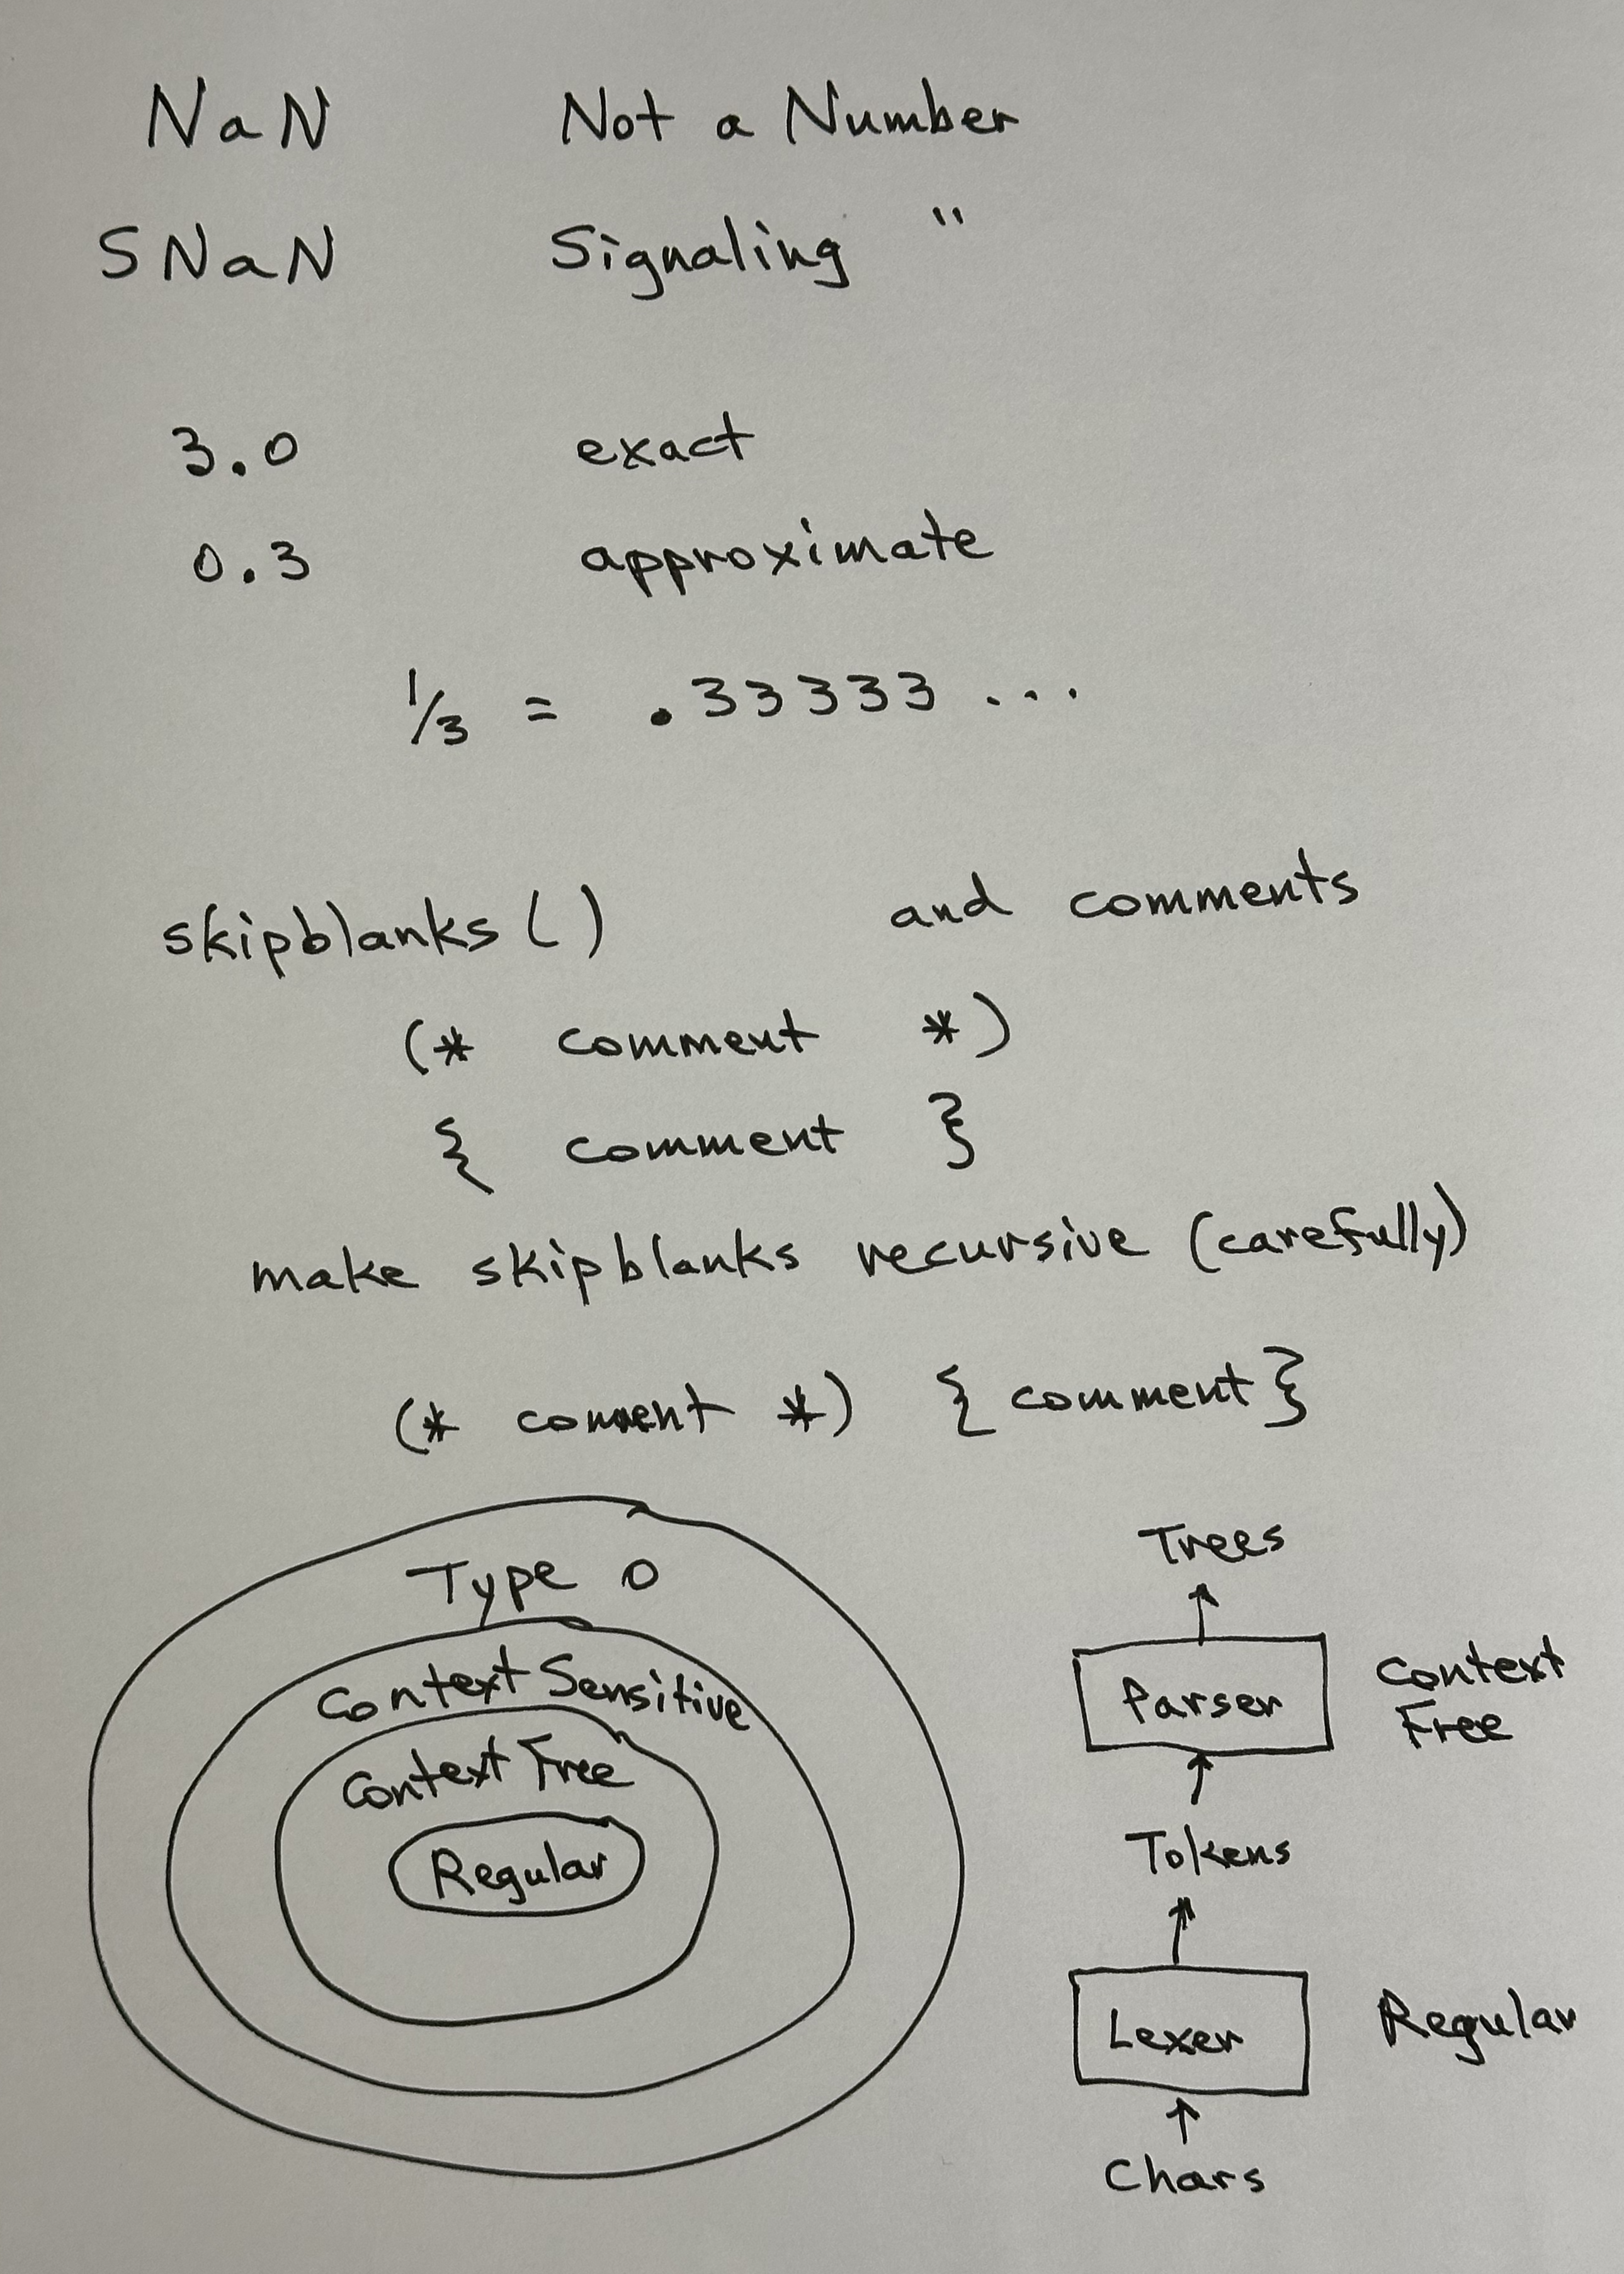 NaN Not a Number
SNaN Signaling "
3.0 exact
0.3 approximate
1/3 = .33333 ...
skipblanks() and comments
(* comment *)
{ comment }
make skipblanks recursive (carefully)
(* comment *) { comment }
Type 0
Context Sensitive
Context Free
Regular
Trees
Parser Context
Free
Tokens
Lexer Regular
Chars